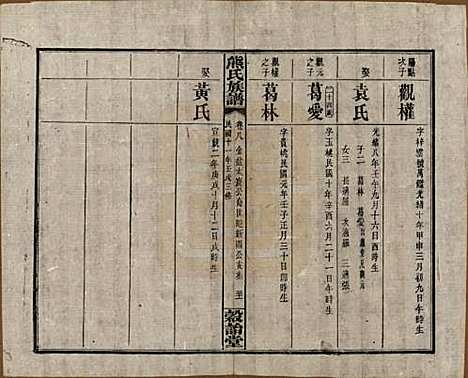 陽點次子
觀權
字梓雲號萬鑑光緒十年甲申三月初九日午時生
娶
袁氏
光緒八年壬午九月十六日酉時生
子二 葛林 葛愛
女三 長適 次適 三適張
觀元之子
二十四派
葛愛
字玉桃民國十年辛酉六月二十一日午時生
觀權之子
葛林
字貴桃民國元年壬子正月三十日卯時生
熊氏族譜
卷八
民國十一年壬戌三修
穀詒堂
娶
黃氏
宣統二年庚戌十月十二日戌時生